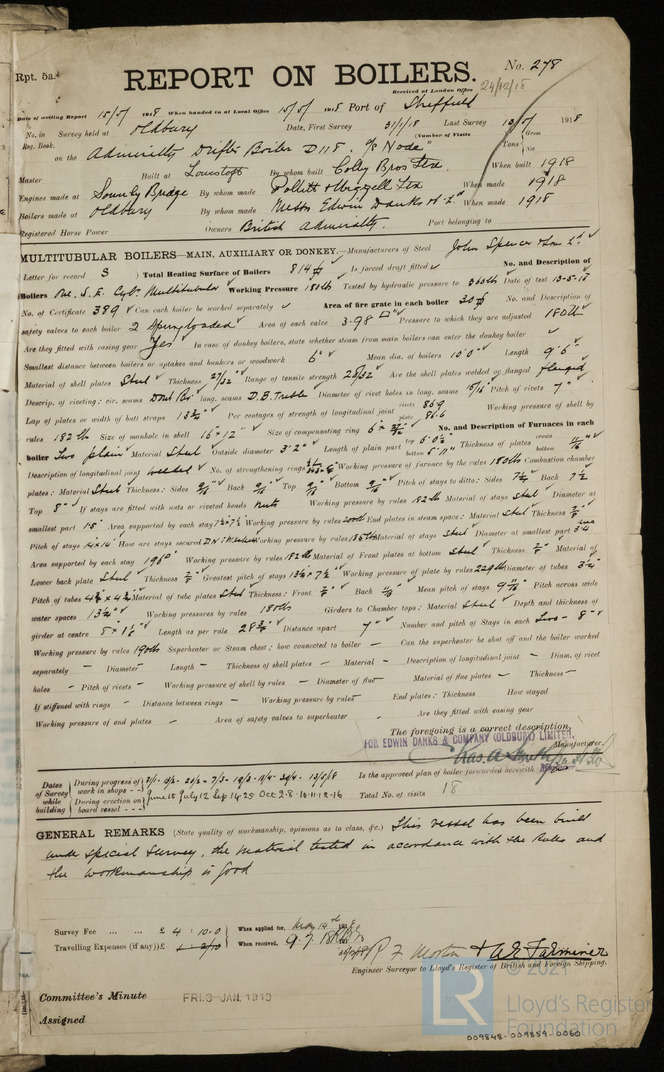 Rpt. 5a.
No. 278
REPORT ON BOILERS.
Received at London Office 24/12/18
Date of writing Report 15/5/ 1918 When handed in at Local Office 15/5/ 1918 Port of Sheffield
No. in Reg. Book. Survey held at Oldbury Date, First Survey 31/1/18 Last Survey 13/5/ 1918
(Number of Visits
on the Admiralty Drifter Boiler D 118. "Node" Tons Gross Net
Master Built at Lowestoft By whom built Colby Bros Ltd When built 1918
Engines made at Sowerby Bridge By whom made Pollitt & Wigzell Ltd When made 1918
Boilers made at Oldbury By whom made Messrs Edwin Danks & Co Ld When made 1918
Registered Horse Power Owners British Admiralty. Port belonging to
MULTITUBULAR BOILERS—MAIN, AUXILIARY OR DONKEY.—Manufacturers of Steel John Spencer & Son Ld
Letter for record S Total Heating Surface of Boilers 814 Is forced draft fitted No. and Description of
Boilers One S. E. Cyl. Multitubular Working Pressure 180 lb Tested by hydraulic pressure to 360 lb Date of test 13-5-18
No. of Certificate 389 Can each boiler be worked separately Area of fire grate in each boiler 30 No. and Description of
safety valves to each boiler 2 Springloaded Area of each valve 3.98 Pressure to which they are adjusted 180 lb
Are they fitted with easing gear Yes In case of donkey boilers, state whether steam from main boilers can enter the donkey boiler
Smallest distance between boilers or uptakes and bunkers or woodwork 6" Mean dia. of boilers 10'0" Length 9'6"
Material of shell plates Steel Thickness 27/32 Range of tensile strength 28/32 Are the shell plates welded or flanged flanged
Descrip. of riveting: cir. seams long. seams D.B. Treble Diameter of rivet holes in long. seams 15/16 Pitch of rivets 7"
Lap of plates or width of butt straps Per centages of strength of longitudinal joint rivets 86.9 plate 86.6 Working pressure of shell by
rules 182 lb Size of manhole in shell 16 × 12" Size of compensating ring No. and Description of Furnaces in each
boiler Two plain Material Steel Outside diameter 3'2" Length of plain part top 6'0 bottom 5'11" Thickness of plates crown bottom 11/16"
Description of longitudinal joint welded No. of strengthening rings Working pressure of furnace by the rules 180 lb Combustion chamber
plates: Material Steel Thickness: Sides 9/16 Back 9/16 Top 9/16 Bottom 9/16 Pitch of stays to ditto: Sides Back 7½
Top 8" If stays are fitted with nuts or riveted heads Nuts Working pressure by rules 182 lb Material of stays Steel Diameter at
smallest part Area supported by each stay Working pressure by rules 200 lb End plates in steam space: Material Steel Thickness
Pitch of stays 14×14" How are stays secured Working pressure by rules Material of stays Steel Diameter at smallest part
Area supported by each stay 196 Working pressure by rules 182 lb Material of Front plates at bottom Steel Thickness Material of
Lower back plate Steel Thickness Greatest pitch of stays 13½ × 7½ Working pressure of plate by rules 229 lb Diameter of tubes 3¼
Pitch of tubes Material of tube plates Steel Thickness: Front Back Mean pitch of stays Pitch across wide
water spaces Working pressures by rules 180 lb Girders to Chamber tops: Material Steel Depth and thickness of
girder at centre Length as per rule Distance apart 7" Number and pitch of Stays in each Two - 8"
Working pressure by rules 190 lb Superheater or Steam chest: how connected to boiler — Can the superheater be shut off and the boiler worked
separately — Diameter — Length — Thickness of shell plates — Material — Description of longitudinal joint — Diam. of rivet
holes — Pitch of rivets — Working pressure of shell by rules — Diameter of flue — Material of flue plates — Thickness —
If stiffened with rings — Distance between rings — Working pressure by rules — End plates: Thickness How stayed
Working pressure of end plates — Area of safety valves to superheater — Are they fitted with easing gear
The foregoing is a correct description,
FOR EDWIN DANKS & COMPANY (OLDBURY) LIMITED.
Manufacturer.
Dates of Survey while building During progress of work in shops - - 13/5/18 Is the approved plan of boiler forwarded herewith
During erection on board vessel - - - June 18 July 12 Sep 14-25 Oct 2-8-10-11-12-16 Total No. of visits 18
GENERAL REMARKS (State quality of workmanship, opinions as to class, &c.) This vessel has been built
under special survey, the material tested in accordance with the Rules and
the workmanship is good
Survey Fee ... ... £ 4 : 10-0 When applied for, May 14th 1918
Travelling Expenses (if any) £ When received, 9.7.18
R F Morton & A.E. Farminer
Engineer Surveyor to Lloyd's Register of British and Foreign Shipping.
Committee's Minute FRI. 3 - JAN. 1919
Assigned
© 2021
LR
Lloyd's Register
Foundation
009848-009859-0060